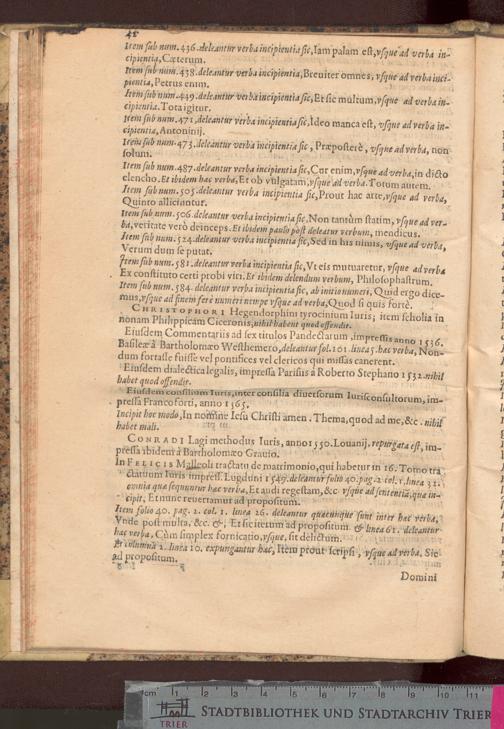 42
Item sub num. 436. deleantur verba incipientia sic, Iam palam est, vsque ad verba in-
cipientia, Cæterum.
Item sub num. 438. deleantur verba incipientia sic, Breuiter omnes, vsque ad verba inci-
pientia, Petrus enim.
Item sub num. 449. deleantur verba incipientia sic, Et sic multum, vsque ad verba in-
cipientia. Tota igitur.
Item sub num. 471, deleantur verba incipientia sic, Ideo manca est, vsque ad verba in-
cipientia, Antoninij.
Item sub num. 473. deleantur verba incipientia sic, Præposterè, vsque ad verba, non
solum.
Item sub num. 487. deleantur verba incipientia sic, Cur enim, vsque ad verba, in dicto
elencho. Et ibidem hac verba, Et ob vulgatam, vsque ad verba. Totum autem.
Item sub num. 505. deleantur verba incipientia sic, Prout hac arte, vsque ad verba,
Quinto alliciantur.
Item sub num. 506. deleantur verba incipientia sic. Non tantùm statim, vsque ad ver-
ba, veritate verò deinceps. Et ibidem paulò post deleatur verbum, mendicus.
Item sub num. 524. deleantur verba incipientia sic, Sed in his nimis, vsque ad verba,
Verum dum se putat.
Item sub num. 581. deleantur verba incipientia sic, Vt eis mutuaretur, vsque ad verba
Ex constituto certi probi viri. Et ibidem delendum verbum, Philosophastrum.
Item sub num. 584. deleantur verba incipientia sic, ab initio numeri, Quid ergo dice-
mus, vsque ad finem ferè numeri nempe vsque ad verba, Quod si quis fortè.
CHRISTOPHORI Hegendorphini tyrocinium Iuris; item scholia in
nonam Philippicam Ciceronis, nihil habent quod offendit.
Eiusdem Commentariis ad sex titulos Pandectarum, impressis anno 1536.
Basileæ à Bartholomæo Westhemero, deleantur fol. 101. linea 5. hac verba, Non-
dum fortasse fuisse vel pontifices vel clericos qui missas canerent.
Eiusdem dialectica legalis, impressa Parisiis à Roberto Stephano 1532. nihil
habet quod offendit.
Eiusdem consilium Iuris, inter consilia diuersorum Iurisconsultorum, im-
pressa Francoforti, anno 1565.
Incipit hoc modo, In nomine Iesu Christi amen. Thema, quod ad me, &c. nihil
habet mali.
CONRADI Lagi methodus Iuris, anno 1550. Louanij. repurgata est, im-
pressa ibidem à Bartholomæo Grauio.
In FELICIS Malleoli tractatu de matrimonio, qui habetur in 16. Tomo tra-
ctatuum Iuris impress. Lugduni 1549. deleantur folio 40. pag. 2. col. 1. linea 32.
omnia quæ sequuntur hæc verba, Et audi regestam, &c vsque ad sententiã, quæ in-
cipit, Et nunc reuertamur ad propositum.
Item folio 40. pag. 2. col. 1. linea 26. deleantur quæcunque sunt inter hæc verba,
Vnde post multa, &c. &, Et sic iterum ad propositum. & linea 61. deleantur
hac verba, Cùm simplex fornicatio, vsque, sit delictum.
Et columna 2. linea 10. expungantur hæc, Item prout scripsi, vsque ad verba, Sic
ad propositum.
Domini
cm 1 2 3 4 5 6 7 8 9 10 11
TRIER
STADTBIBLIOTHEK UND STADTARCHIV TRIER